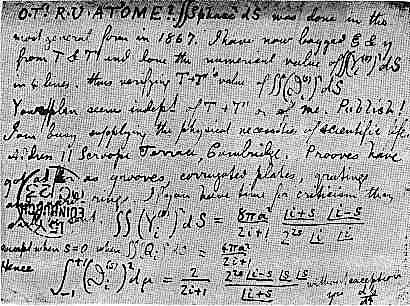 O.T'. R.U. AT 'OME? ∬ Spharc² dS was done in the
most general form in 1867. I have now bagged ξ & η
from T & T' and done the numerical value of ∬(Y_i^(s))² dS
in 4 lines. thus verifying T+T''s value of ∬(ϑ_i^(s))² dS
Your plan seem indept of T+T' or of me. Publish!
I am busy supplying the physical necessities of scientific life
written 11 Scroope Terrace, Cambridge. Prooves have
got as grooves, corrugated plates, gratings
rings. If you have time for criticism then
EDINBURGH
∬(Y_i^(s))² dS = 8πa²/(2i+1) |i+s |i-s / 2^(2s) |i |i
except when S=0 when ∬(Q_i)² dS = 4πa²/(2i+1)
Hence ∫_-1^+1 (ϑ_i^(s))² dμ = 2/(2i+1) 2^(2s) |i-s |s |s / |i+s without exception
yr dp/dt